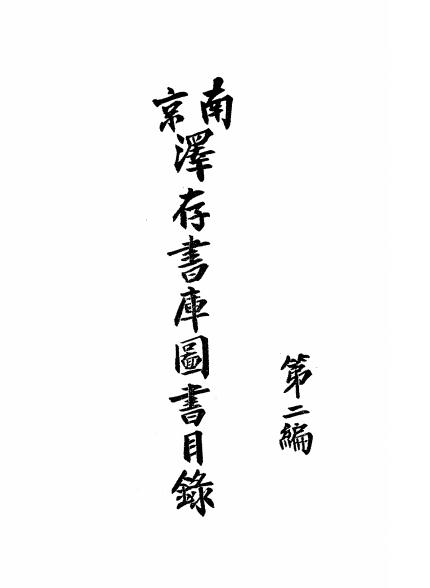 南京
澤存書庫圖書目錄
第二編